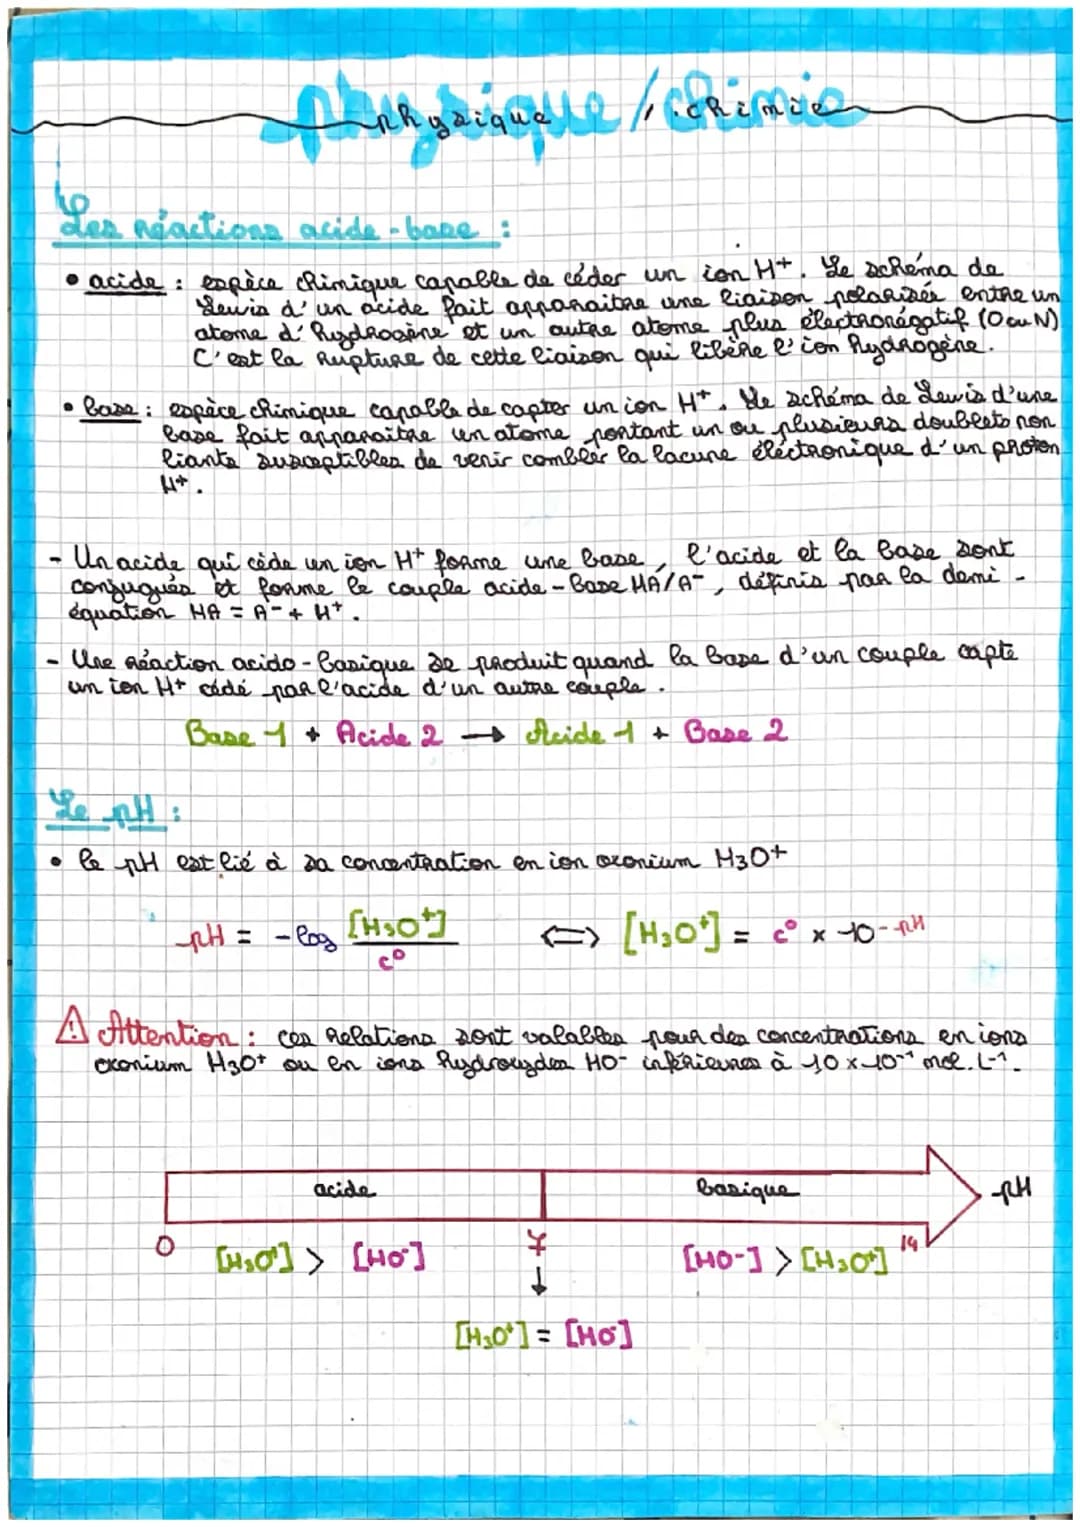 physique / chimie
physique / chimie
Les réactions acide-base :
• acide : espèce chimique capable de céder un ion H+. Le schéma de
Lewis d'un acide fait apparaitre une liaison polarisée entre un
atome d'hydrogène et un autre atome plus électronégatif (O ou N)
C'est la rupture de cette liaison qui libère l'ion hydrogène.
• base : espèce chimique capable de capter un ion H+. Le schéma de Lewis d'une
base fait apparaître un atome portant un ou plusieurs doublets non
liants susceptibles de venir combler la lacune éléctronique d'un proton
H+.
- Un acide qui cède un ion H+ forme une base, l'acide et la base sont
conjugués et forme le couple acide-base HA/A-, définis par la demi-
équation HA = A- + H+.
- Une réaction acido-basique se produit quand la base d'un couple capte
un ion H+ cédé par l'acide d'un autre couple.
Base 1 + Acide 2 → Acide 1 + Base 2
Le pH :
• le pH est lié à sa concentration en ion oxonium H3O+
pH = -log [H3O+] / c° ⟺ [H3O+] = c° x 10-pH
⚠ Attention : ces relations sont valables pour des concentrations en ions
oxonium H3O+ ou en ions hydroxydes HO- inférieures à 10 x 10-1 mol.L-1.
acide basique pH
0 7 14
[H3O+] > [HO-] ↓ [HO-] > [H3O+]
[H3O+] = [HO-]